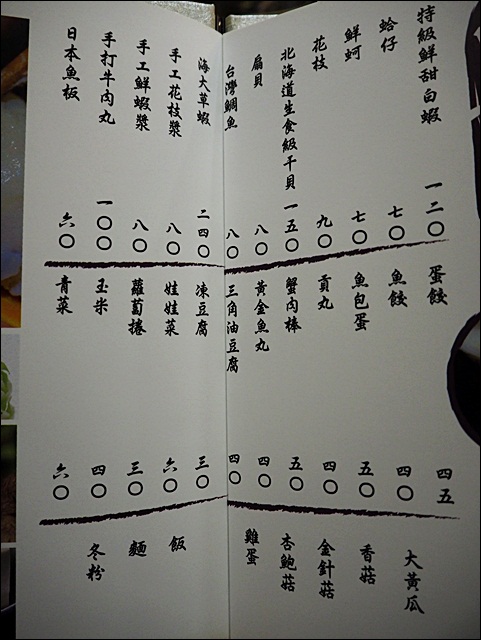 特級鮮甜白蝦 一二〇
蛤仔 七〇
鮮蚵 七〇
花枝 九〇
北海道生食級干貝 一五〇
扇貝 八〇
台灣鯛魚 八〇
海大草蝦 二四〇
手工花枝漿 八〇
手工鮮蝦漿 八〇
手打牛肉丸 一〇〇
日本魚板 六〇
蛋餃 四五
魚餃 四〇
魚包蛋 五〇
貢丸 四〇
蟹肉棒 五〇
黃金魚丸 四〇
三角油豆腐 四〇
凍豆腐 三〇
娃娃菜 六〇
蘿蔔捲 三〇
玉米 四〇
青菜 六〇
大黃瓜
香菇
金針菇
杏鮑菇
雞蛋
飯
麵
冬粉